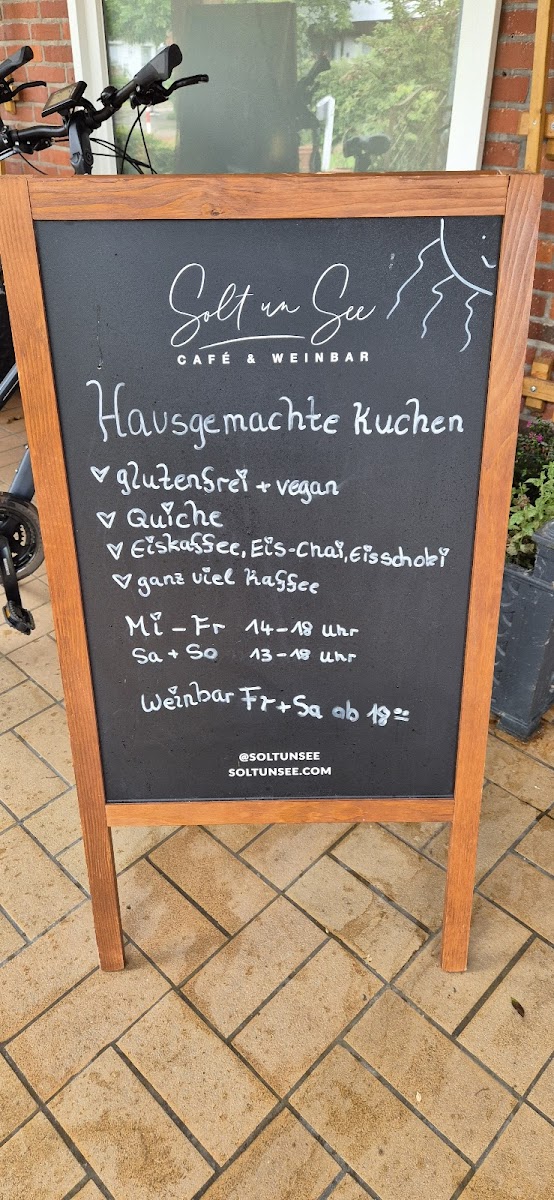 Solt un See
CAFÉ & WEINBAR
Hausgemachte Kuchen
glutenfrei + vegan
Quiche
Eiskaffee, Eis-Chai, Eisschoki
ganz viel Kaffee
Mi - Fr 14-18 Uhr
Sa + So 13-18 Uhr
Weinbar Fr + Sa ab 18⁰⁰
@SOLTUNSEE
SOLTUNSEE.COM